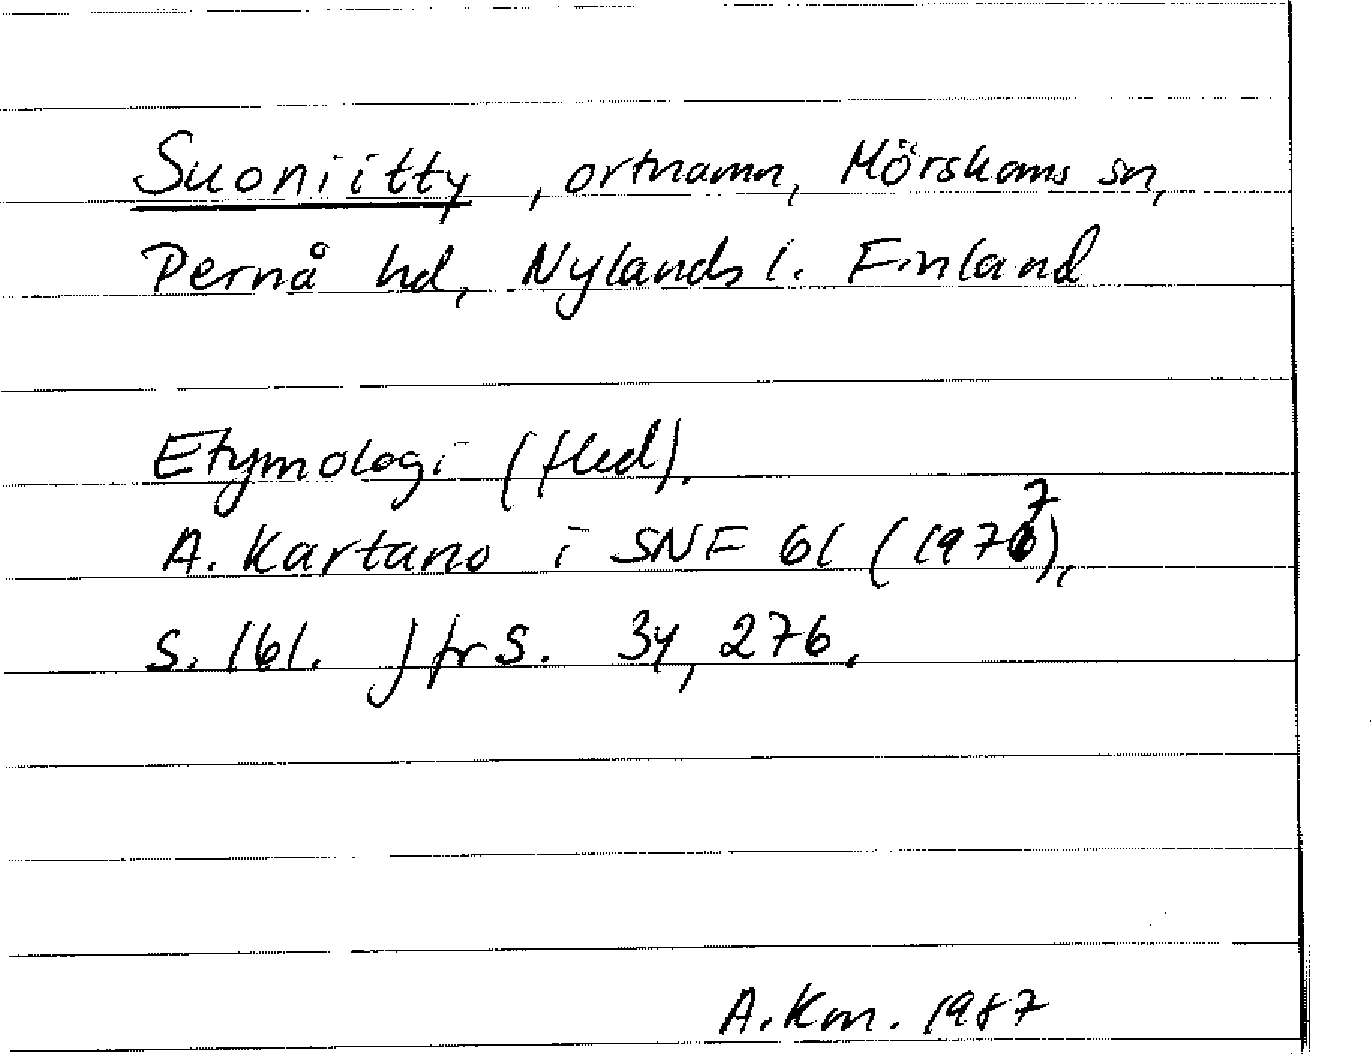 Suoniitty, ortnamn, Mörskoms sn,
Pernå hd, Nylands l. Finland
Etymologi (fled).
A. Kartano i SNF 61 (1977),
s. 161. Jfr s. 34, 276.
A. Km. 1987